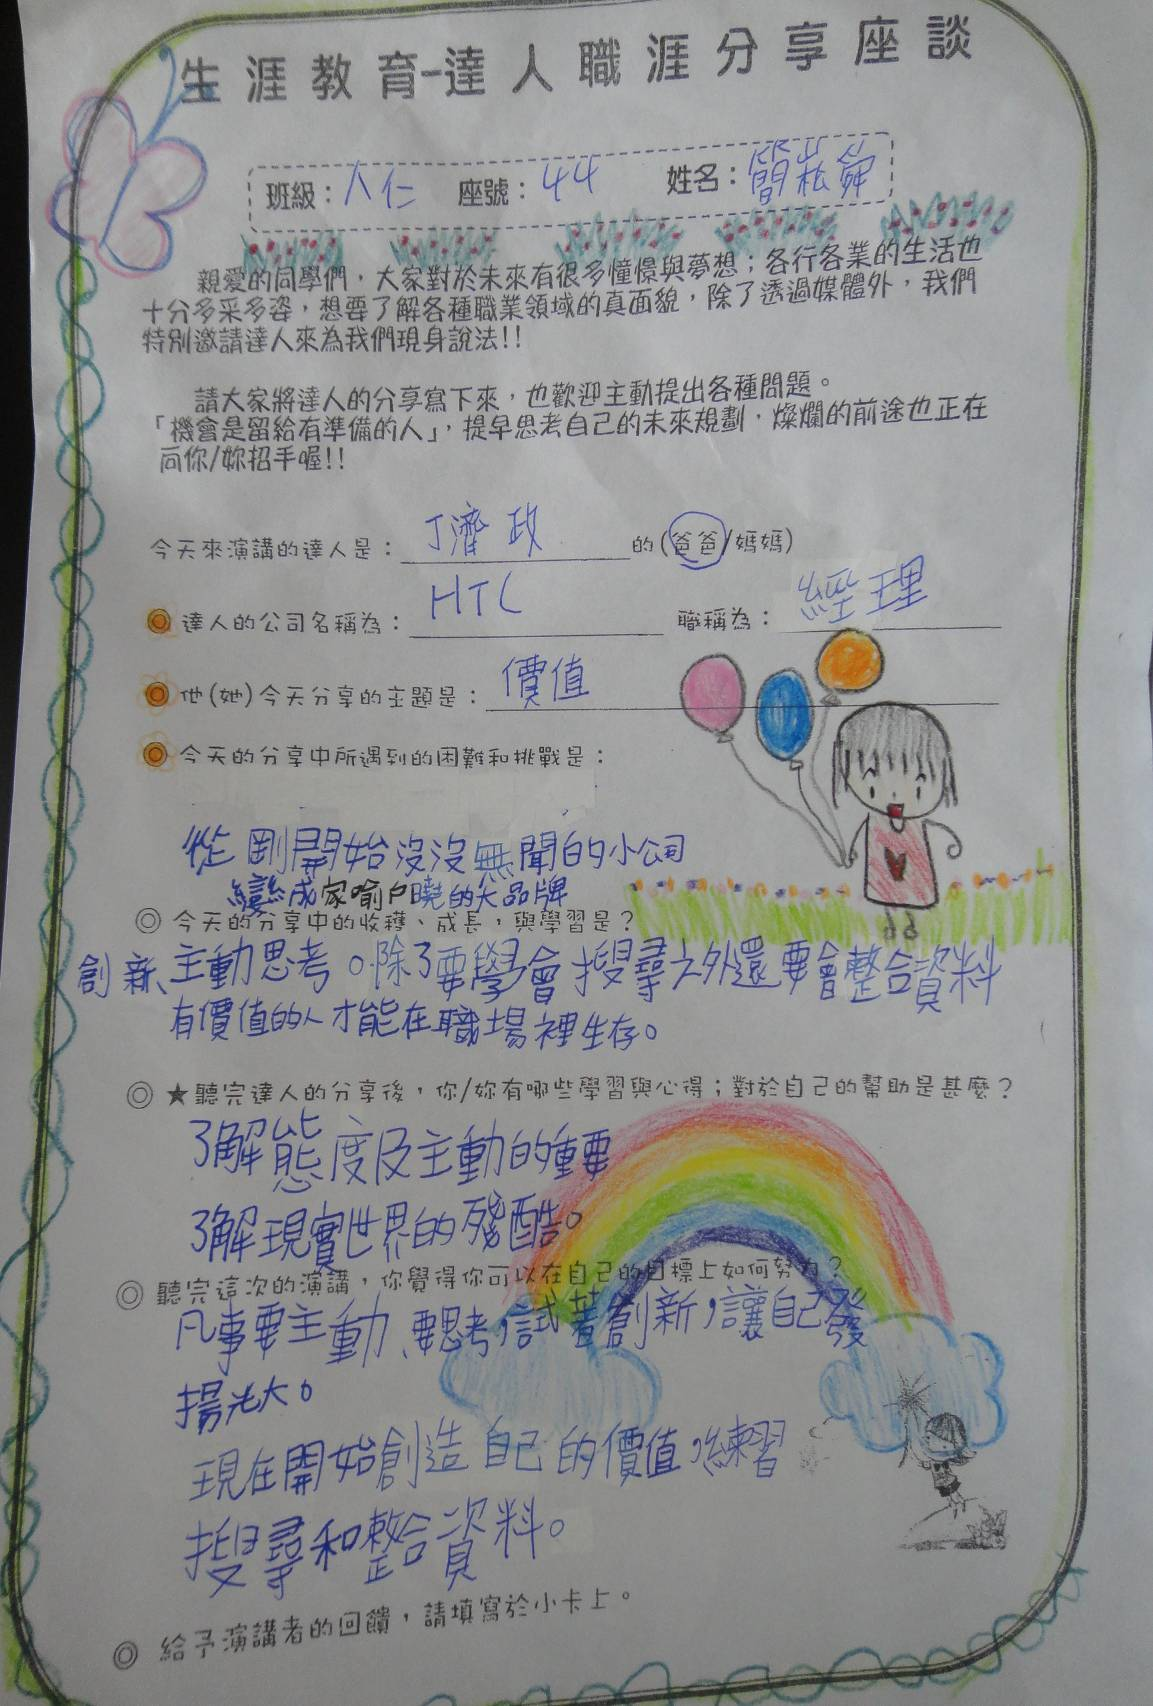 生涯教育-達人職涯分享座談
班級：八仁 座號：44 姓名：簡崧舜
親愛的同學們，大家對於未來有很多憧憬與夢想；各行各業的生活也
十分多采多姿，想要了解各種職業領域的真面貌，除了透過媒體外，我們
特別邀請達人來為我們現身說法!!
請大家將達人的分享寫下來，也歡迎主動提出各種問題。
「機會是留給有準備的人」，提早思考自己的未來規劃，燦爛的前途也正在
向你/妳招手喔!!
今天來演講的達人是：丁濟政 的(爸爸/媽媽)
達人的公司名稱為：HTC 職稱為：經理
他(她)今天分享的主題是：價值
今天的分享中所遇到的困難和挑戰是：
從剛開始沒沒無聞的小公司
變成家喻戶曉的大品牌
◎ 今天的分享中的收穫、成長，與學習是？
創新、主動思考。除了要學會搜尋之外還要會整合資料
有價值的人才能在職場裡生存。
◎ ★聽完達人的分享後，你/妳有哪些學習與心得；對於自己的幫助是甚麼？
了解態度及主動的重要
了解現實世界的殘酷。
◎ 聽完這次的演講，你覺得你可以在自己的目標上如何努力？
凡事要主動、要思考，試著創新，讓自己發
揚光大。
現在開始創造自己的價值，練習
搜尋和整合資料。
◎ 給予演講者的回饋，請填寫於小卡上。